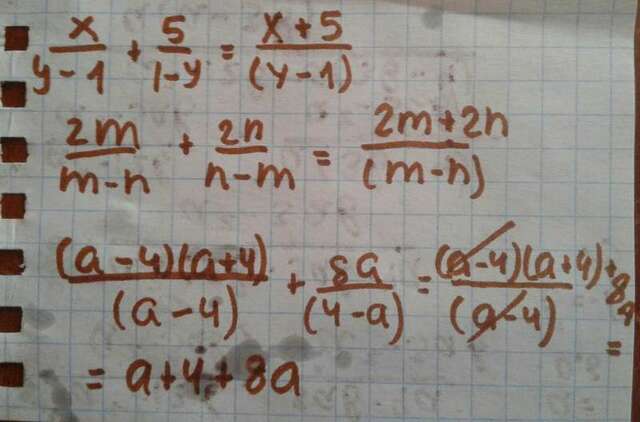 x/(y-1) + 5/(1-y) = (x+5)/(y-1)
2m/(m-n) + 2n/(n-m) = (2m+2n)/(m-n)
(a-4)(a+4)/(a-4) + 8a/(4-a) = (a-4)(a+4)+8a/(a-4) =
= a+4+8a